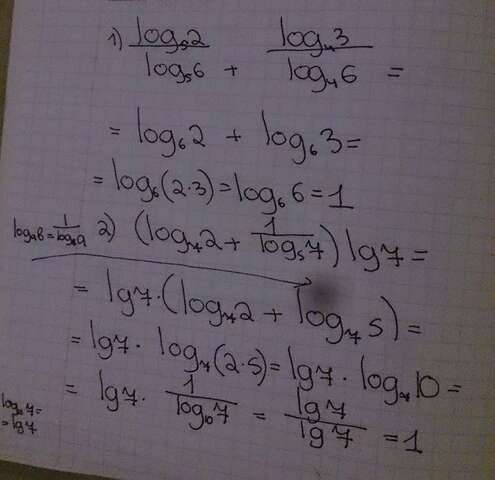 1) log₅2/log₅6 + log₄3/log₄6 =
= log₆2 + log₆3 =
= log₆(2·3) = log₆6 = 1
logₐb = 1/log_b a 2) (log₇2 + 1/log₅7) lg7 =
= lg7·(log₇2 + log₇5) =
= lg7 · log₇(2·5) = lg7 · log₇10 =
= lg7 · 1/log₁₀7 = lg7/lg7 = 1
log₁₀7 =
= lg7